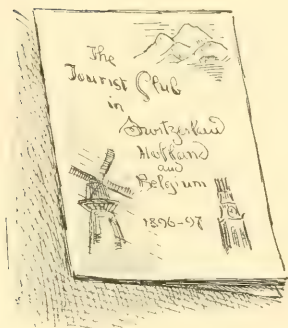 The
Tourist Club
in
Switzerland
Holland
and
Belgium
1896-97